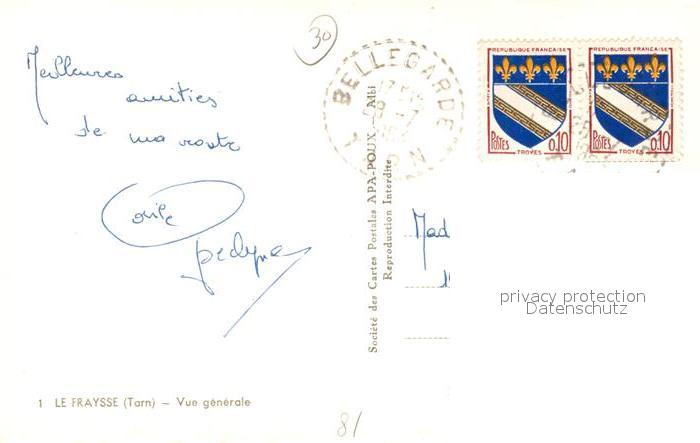 30
Meilleures
amitiés
de ma
BELLEGARDE
TARN
REPUBLIQUE FRANÇAISE
POSTES 0,10
TROYES
REPUBLIQUE FRANÇAISE
POSTES 0,10
TROYES
Société des Cartes Postales APA-POUX — Albi
Reproduction Interdite
Mad
privacy protection
Datenschutz
1 LE FRAYSSE (Tarn) — Vue générale
81